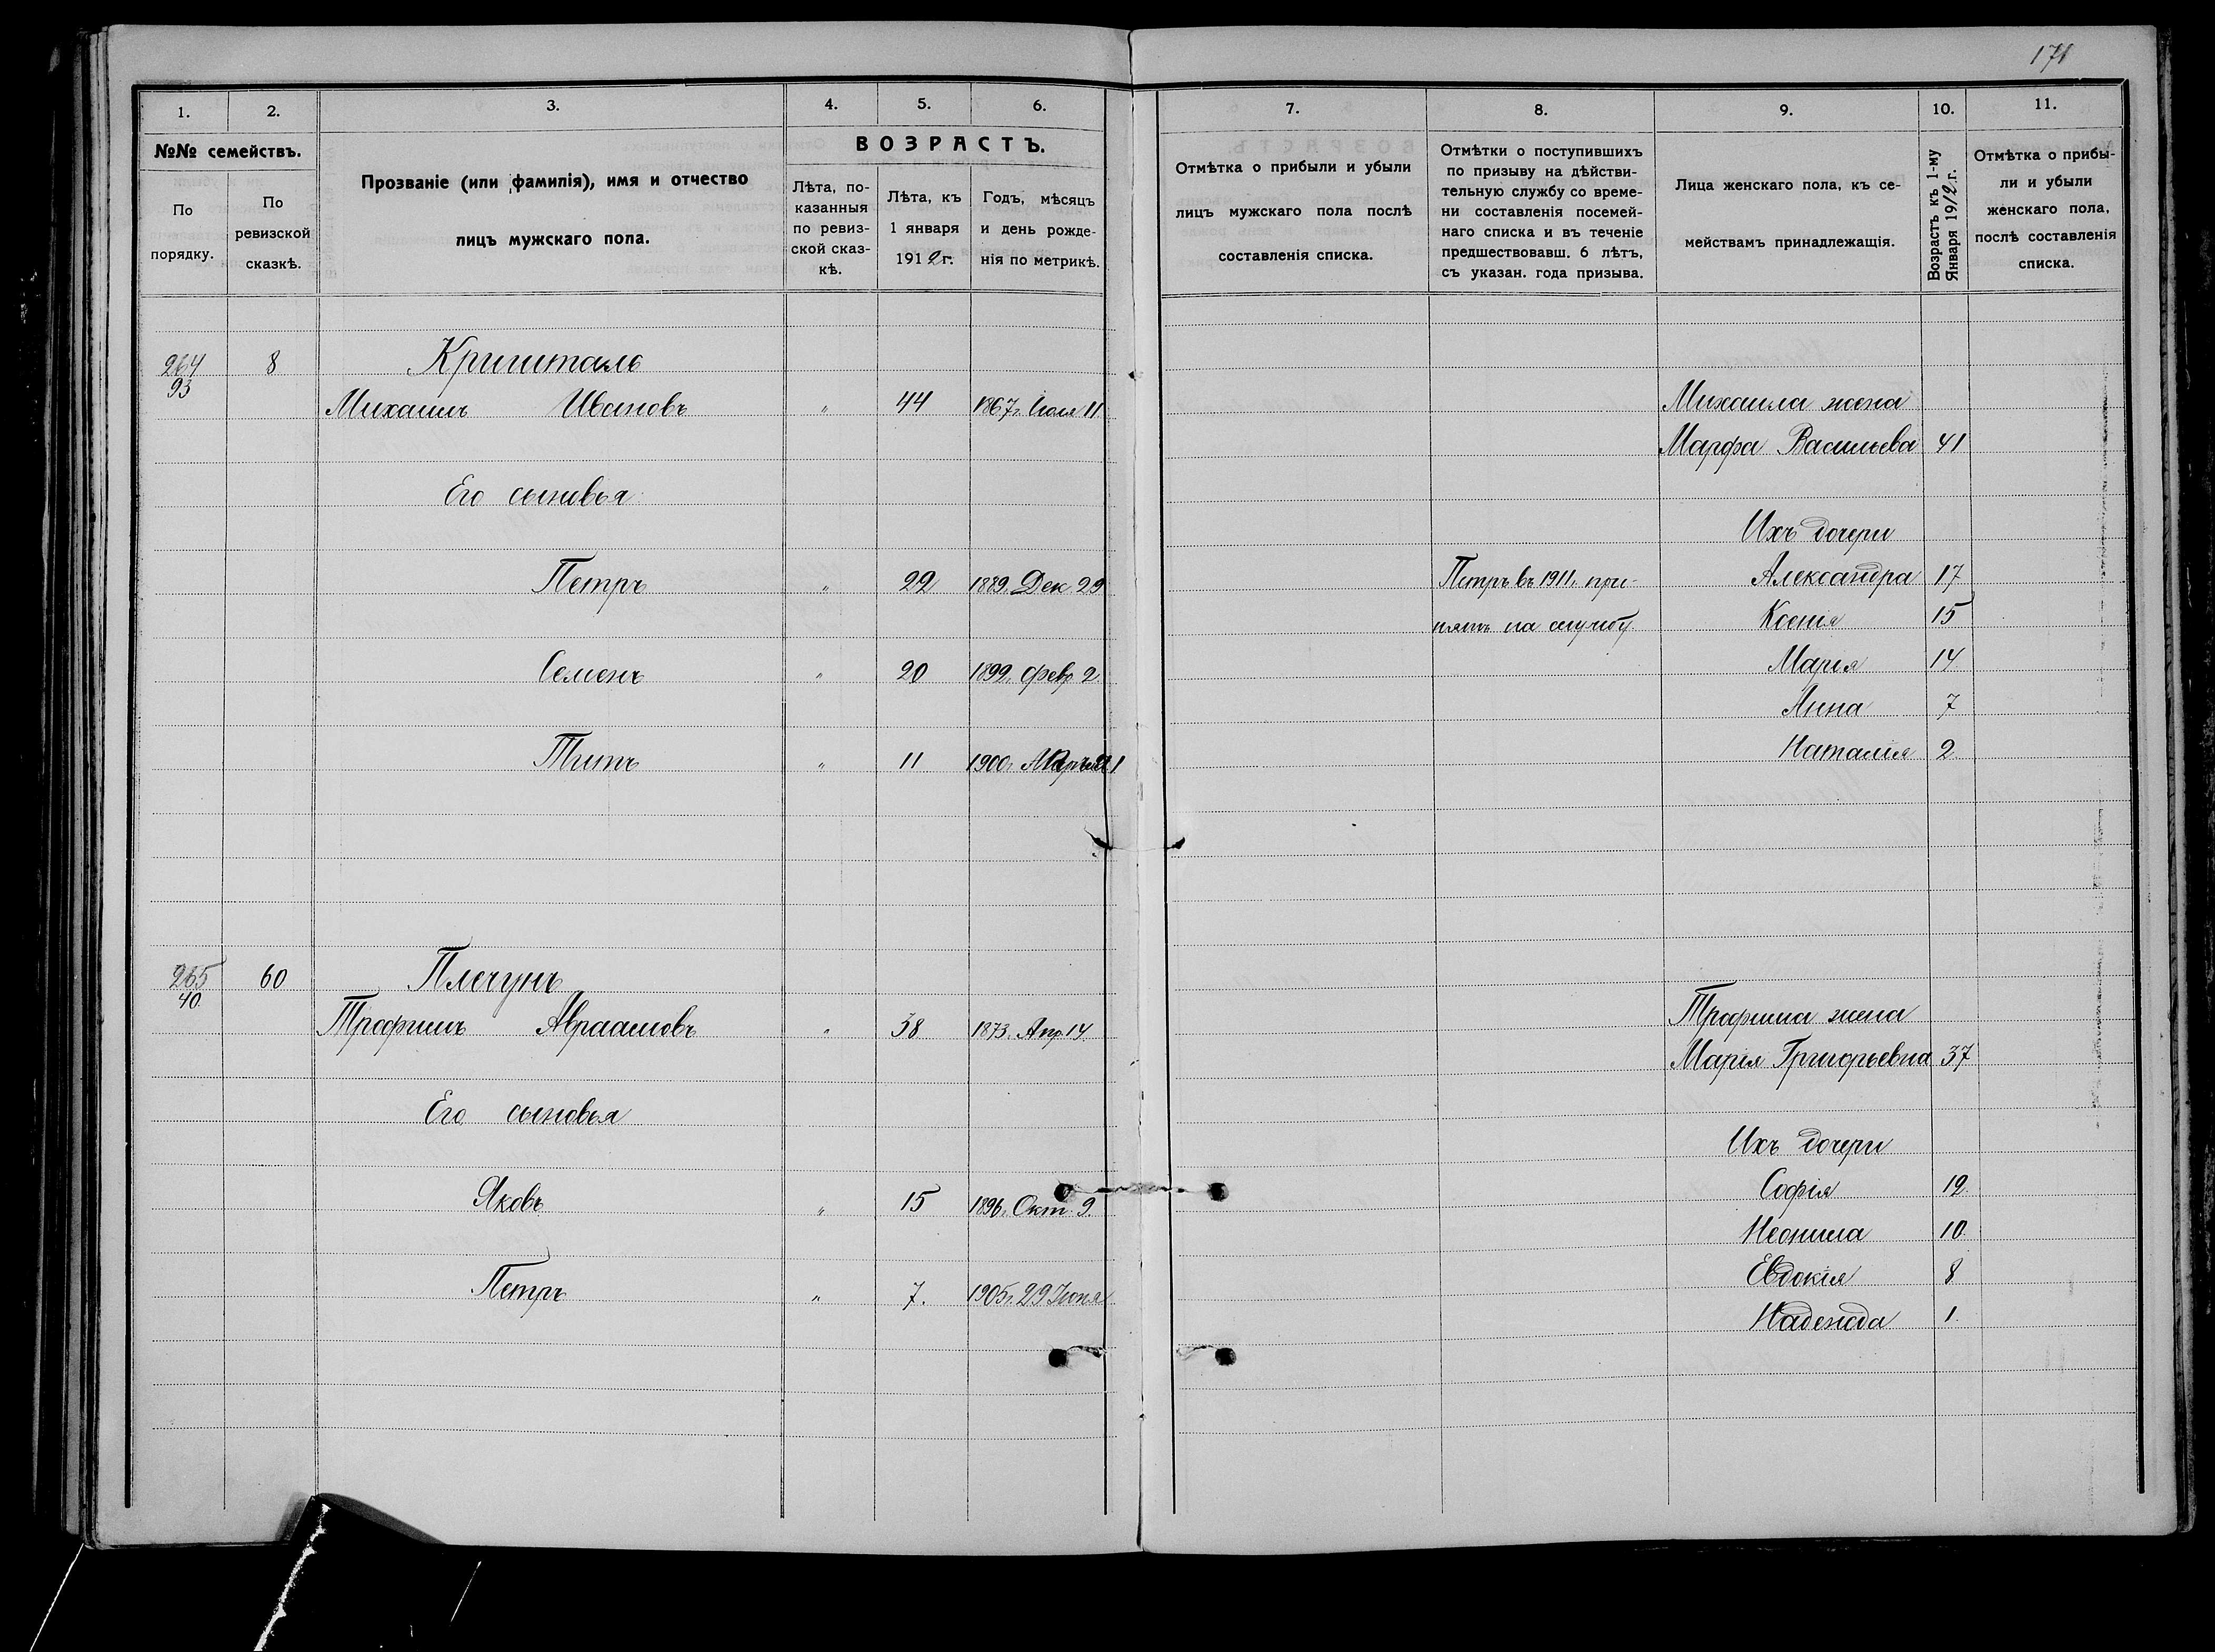 171
1.
2.
3.
4.
5.
6.
№№ семействъ.
По порядку.
По ревизской сказкѣ.
Прозваніе (или фамилія), имя и отчество
лицъ мужскаго пола.
ВОЗРАСТЪ.
Лѣта, по-
казанныя
по ревиз-
ской сказ-
кѣ.
Лѣта, къ
1 января
1912 г.
Годъ, мѣсяцъ
и день рожде-
нія по метрикѣ.
264
93
8
Кришталь
Михаилъ Ивановъ " 44 1867г. Іюля 11
Его сыновья
Петръ " 22 1889. Дек. 29
Семенъ " 20 1899. февр 2
Титъ " 11 1900г.
265
40
60
Плечунъ
Трофимъ Авраамовъ " 38 1873. Апр 14.
Его сыновья
Яковъ " 15 1896. Окт. 9.
Петръ " 7. 1905г. 29 Іюня
7.
8.
9.
10.
11.
Отмѣтка о прибыли и убыли
лицъ мужского пола послѣ
составленія списка.
Отмѣтки о поступившихъ
по призыву на дѣйстви-
тельную службу со време-
ни составленія посемей-
наго списка и въ теченіе
предшествовавш. 6 лѣтъ,
съ указан. года призыва.
Лица женскаго пола, къ се-
мействамъ принадлежащія.
Возрастъ къ 1-му
Января 1912 г.
Отмѣтка о прибы-
ли и убыли
женскаго пола,
послѣ составленія
списка.
Михаила жена
Марфа Васильева 41
Ихъ дочери
Петръ въ 1911г. при- Александра 17
нятъ на службу Ксенія 15
Марія 14
Анна 7
Наталія 2
Трофима жена
Марія Григорьевна 37
Ихъ дочери
Софія 12
Неонила 10
Евдокія 8
Надежда 1